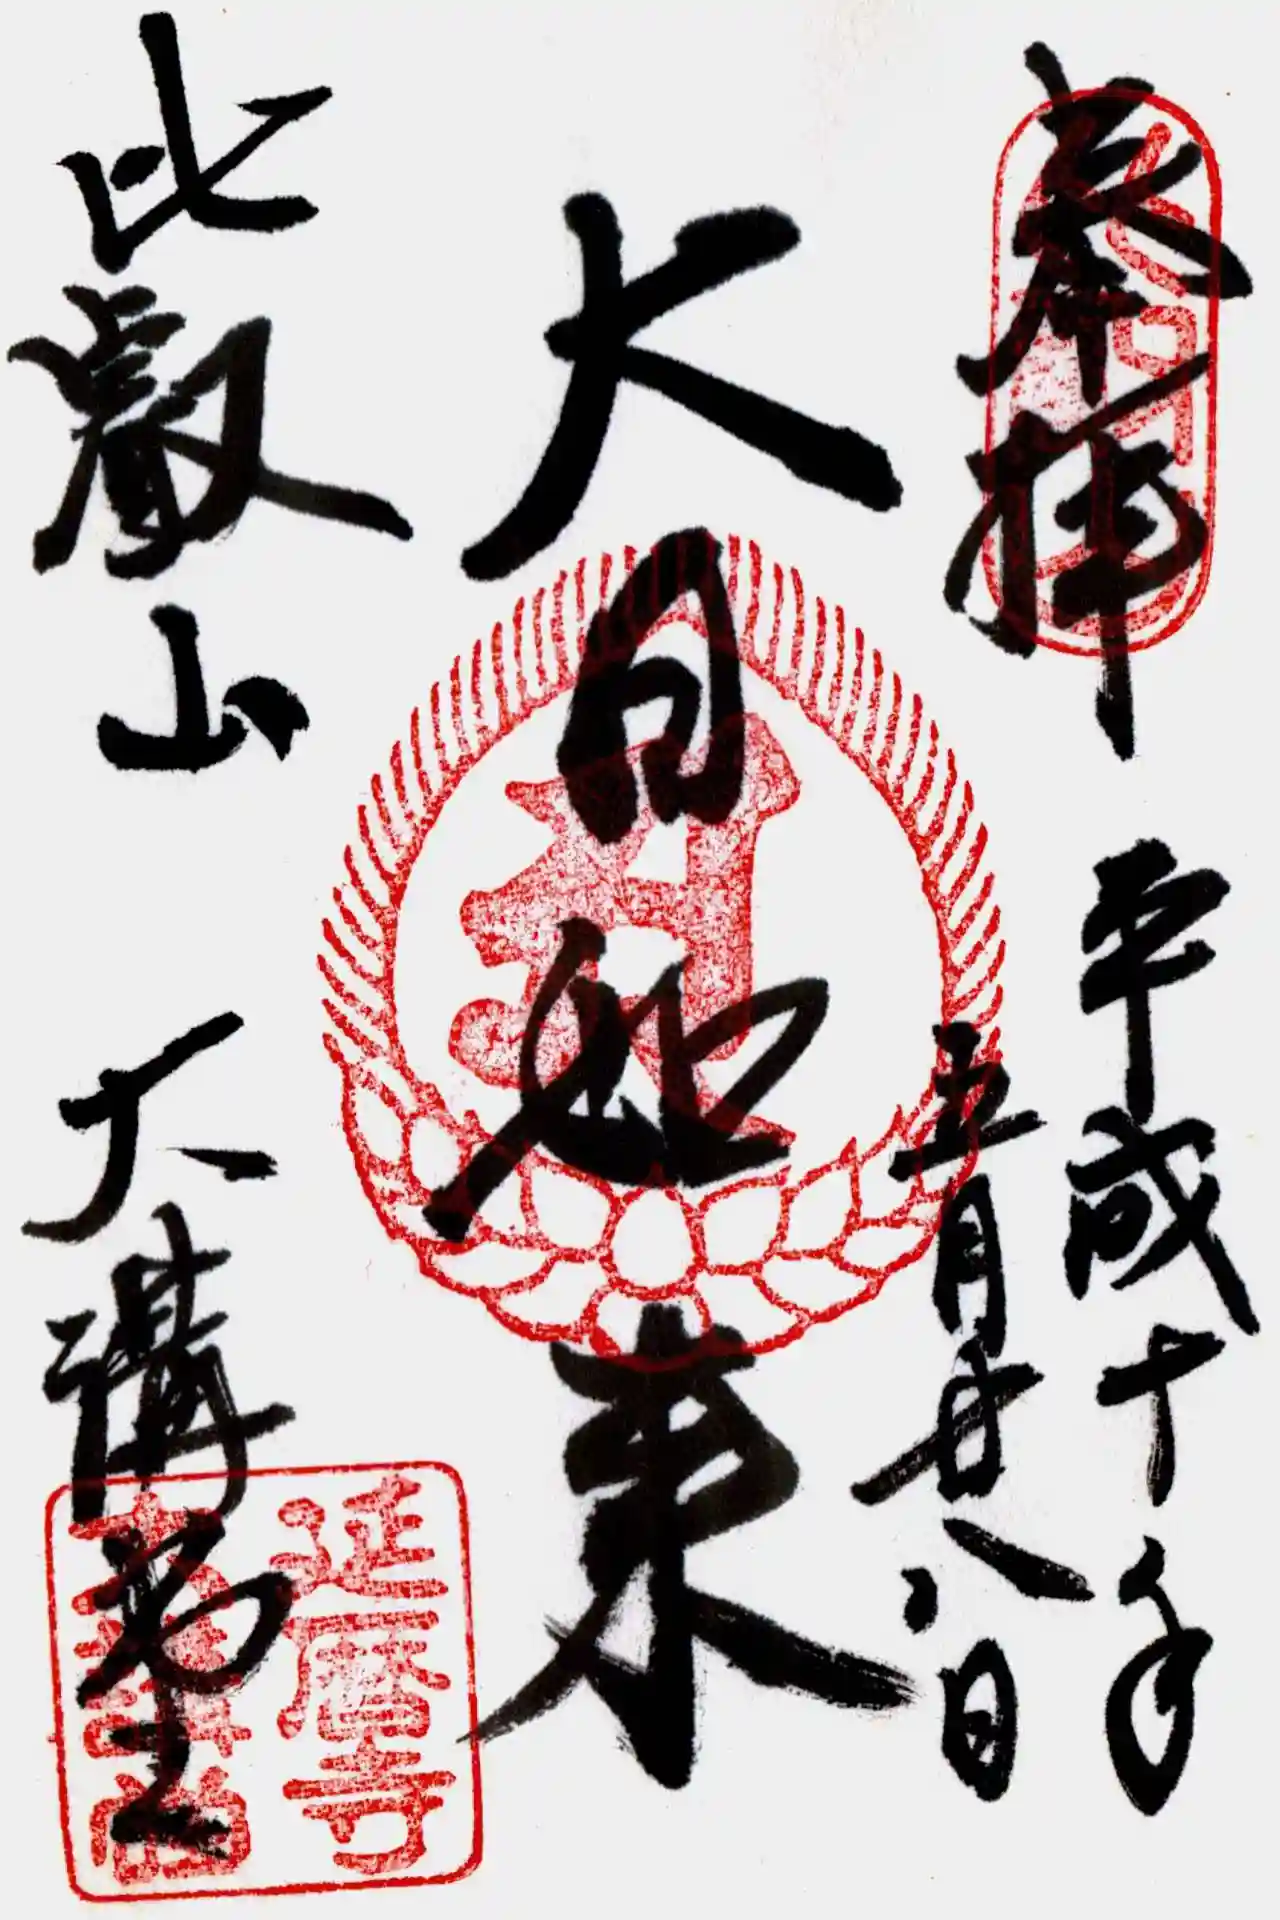 奉拝
平成十年
五月廿八日
大日如来
比叡山
大講堂
延暦寺
大講堂